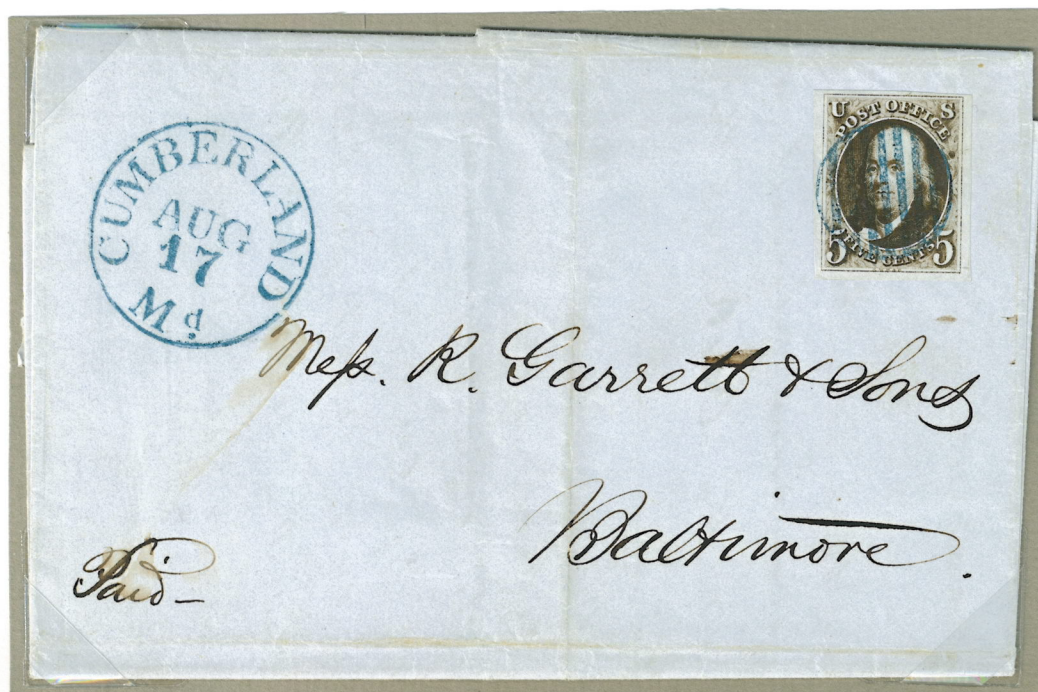 CUMBERLAND
AUG
17
Md
U S
POST OFFICE
5 FIVE CENTS 5
Mess. R. Garrett & Sons
Baltimore.
Paid